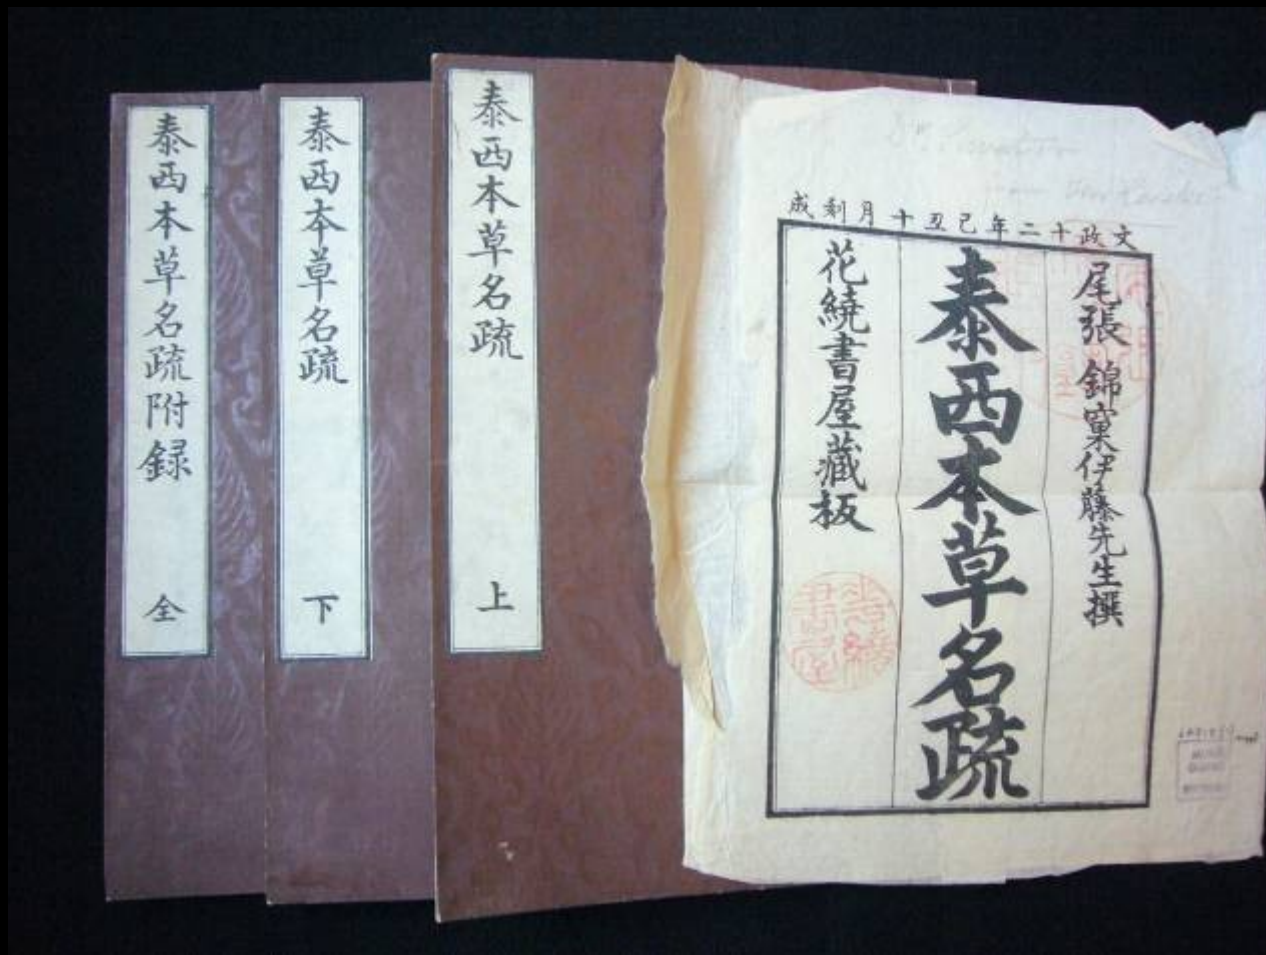 泰西本草名疏附録
全
泰西本草名疏
下
泰西本草名疏
上
文政十二年己丑十月剞成
尾張 錦窠伊藤先生撰
泰西本草名疏
花繞書屋藏板
花繞書屋